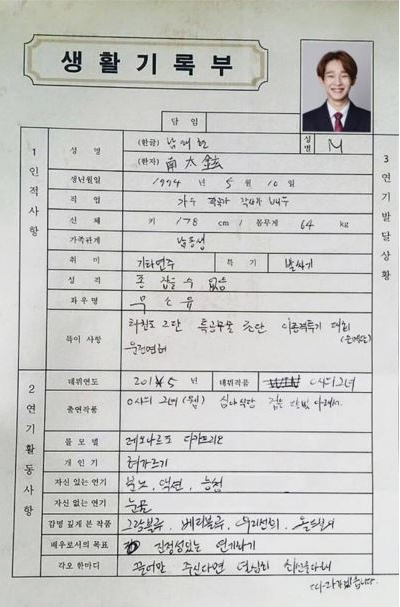 생활기록부
담임
1 인적사항
성명 (한글) 남태현
(한자) 南 太 鉉
성별 M
생년월일 1994 년 5 월 10 일
직업 가수 작곡가 작사가 배우
신체 키 178 cm / 몸무게 64 kg
가족관계 남동생
취미 기타연주 특기
성격 종 잡을 수 없음
좌우명 무소유
특이 사항 태권도 2단 특공무술 초단
운전면허
2 연기활동사항
데뷔연도 2015 년 데뷔작품 0시의 그녀
출연작품 0시의 그녀 심야식당
롤 모델 레오나르도 디카프리오
개인기 혀가르기
자신 있는 연기 분노, 액션, 능청
자신 없는 연기 눈물
감명 깊게 본 작품 그랑블루, 베티블루, 올드보이
배우로서의 목표 진정성있는 연기하기
각오 한마디 끌어만 주신다면 열심히 최선을 다해
따라가겠습니다.
3 연기발달상황